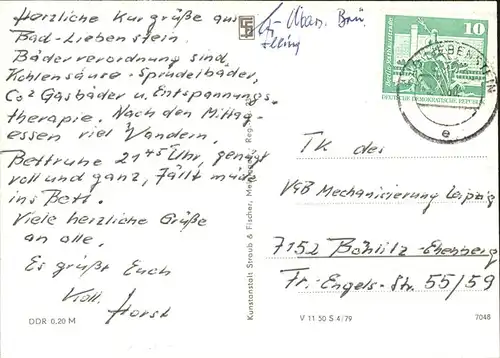 Herzliche Kurgrüße aus
Bad-Liebenstein.
Bäderverordnung sind
Kohlensäure-Sprudelbäder,
Co² Gasbäder u. Entspannungs-
therapie. Nach den Mittag-
essen viel Wandern.
Bettruhe 21⁴⁵ Uhr, genügt
voll und ganz, fällt müde
ins Bett.
Viele herzliche Grüße
an alle.
Es grüßt Euch
Koll. Horst
DDR 0,20 M
Kunstanstalt Straub & Fischer, Meiningen
10
DEUTSCHE DEMOKRATISCHE REPUBLIK
BAD LIEBENSTEIN
e
TK des
VEB Mechanisierung Leipzig
7152 Böhlitz-Ehrenberg
Fr.-Engels-Str. 55/59
V 11 50 S 4/79
7048